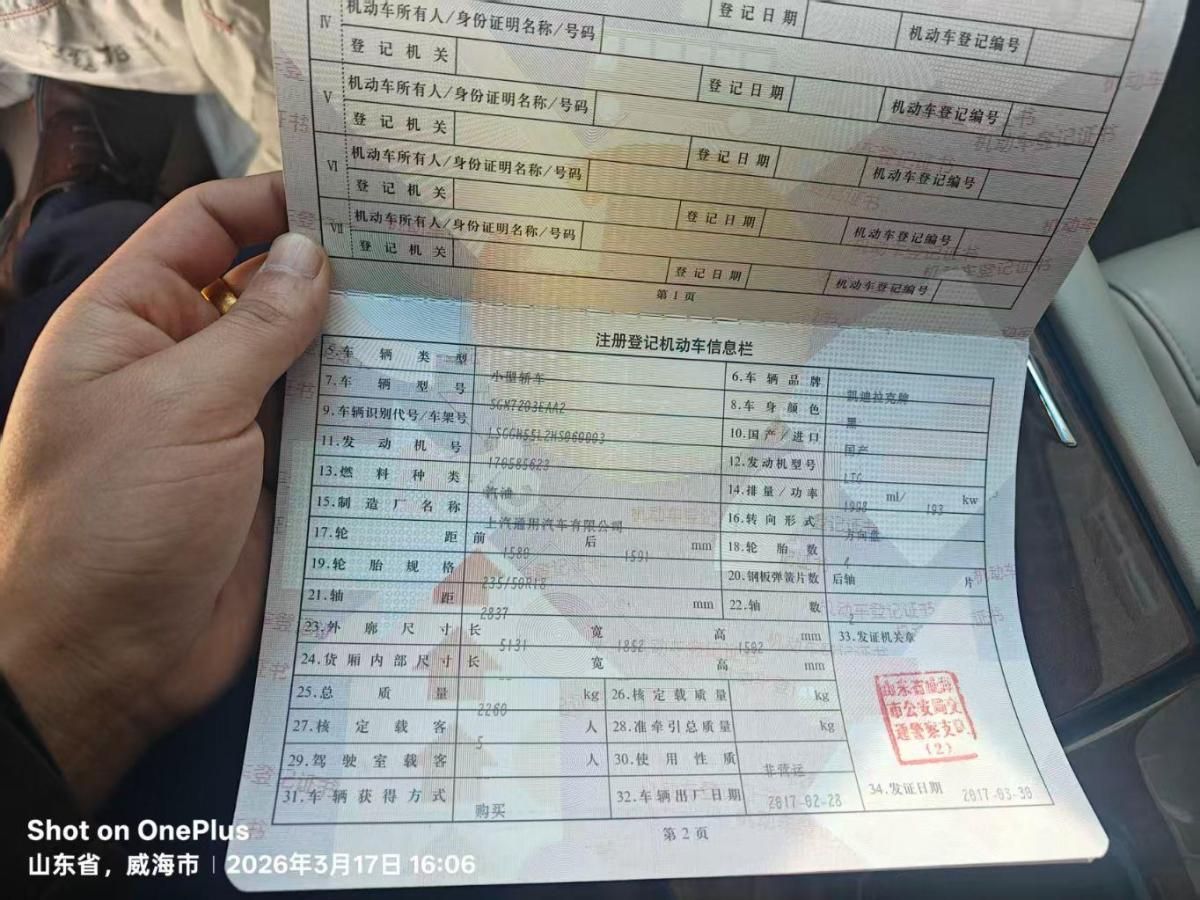 IV 机动车所有人/身份证明名称/号码 登记日期 机动车登记编号
登记机关
V 机动车所有人/身份证明名称/号码 登记日期 机动车登记编号
登记机关
VI 机动车所有人/身份证明名称/号码 登记日期 机动车登记编号
登记机关
VII 机动车所有人/身份证明名称/号码 登记日期 机动车登记编号
登记机关 登记日期 机动车登记编号
第1页
注册登记机动车信息栏
5.车辆类型 小型轿车 6.车辆品牌 凯迪拉克牌
7.车辆型号 SGM7203EAA2 8.车身颜色 黑
9.车辆识别代号/车架号 LSGGN55L2HS060003 10.国产/进口 国产
11.发动机号 170585623 12.发动机型号 LTG
13.燃料种类 汽油 14.排量/功率 1998 ml/ 193 kw
15.制造厂名称 上汽通用汽车有限公司 16.转向形式 方向盘
17.轮距 前 1589 后 1591 mm 18.轮胎数 4
19.轮胎规格 235/50R18 20.钢板弹簧片数 后轴 片
21.轴距 2837 mm 22.轴数 2
23.外廓尺寸 长 5131 宽 1852 高 1502 mm 33.发证机关章
24.货厢内部尺寸 长 宽 高 mm
25.总质量 2260 kg 26.核定载质量 kg
27.核定载客 5 人 28.准牵引总质量 kg
29.驾驶室载客 人 30.使用性质 非营运
31.车辆获得方式 购买 32.车辆出厂日期 2017-02-28 34.发证日期 2017-03-30
山东省威海
市公安局交
通警察支队
(2)
第2页
Shot on OnePlus
山东省，威海市 | 2026年3月17日 16:06